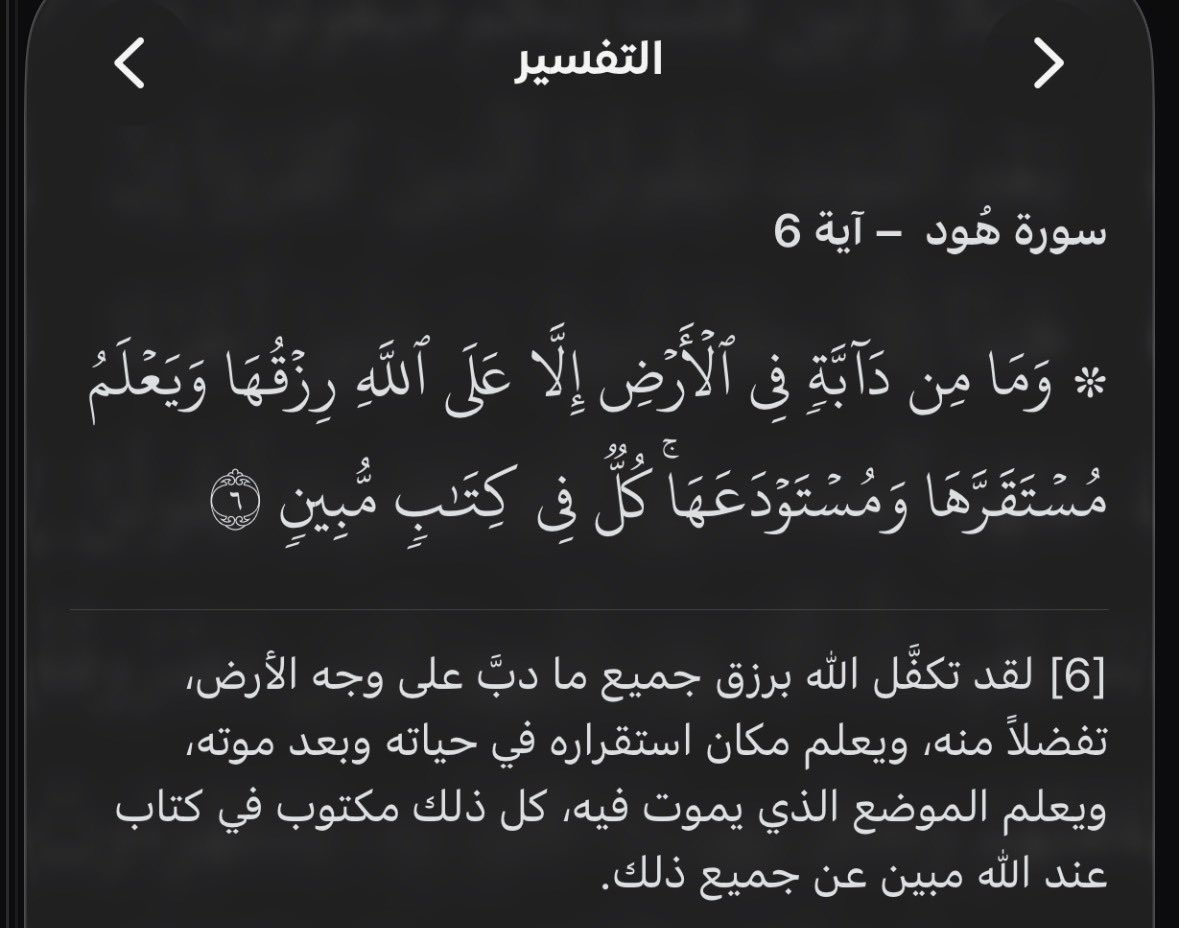 التفسير
سورة هُود – آية 6
۞ وَمَا مِن دَآبَّةٖ فِي ٱلۡأَرۡضِ إِلَّا عَلَى ٱللَّهِ رِزۡقُهَا وَيَعۡلَمُ
مُسۡتَقَرَّهَا وَمُسۡتَوۡدَعَهَاۚ كُلّٞ فِي كِتَٰبٖ مُّبِينٖ ٦
[6] لقد تكفَّل الله برزق جميع ما دبَّ على وجه الأرض،
تفضلاً منه، ويعلم مكان استقراره في حياته وبعد موته،
ويعلم الموضع الذي يموت فيه، كل ذلك مكتوب في كتاب
عند الله مبين عن جميع ذلك.